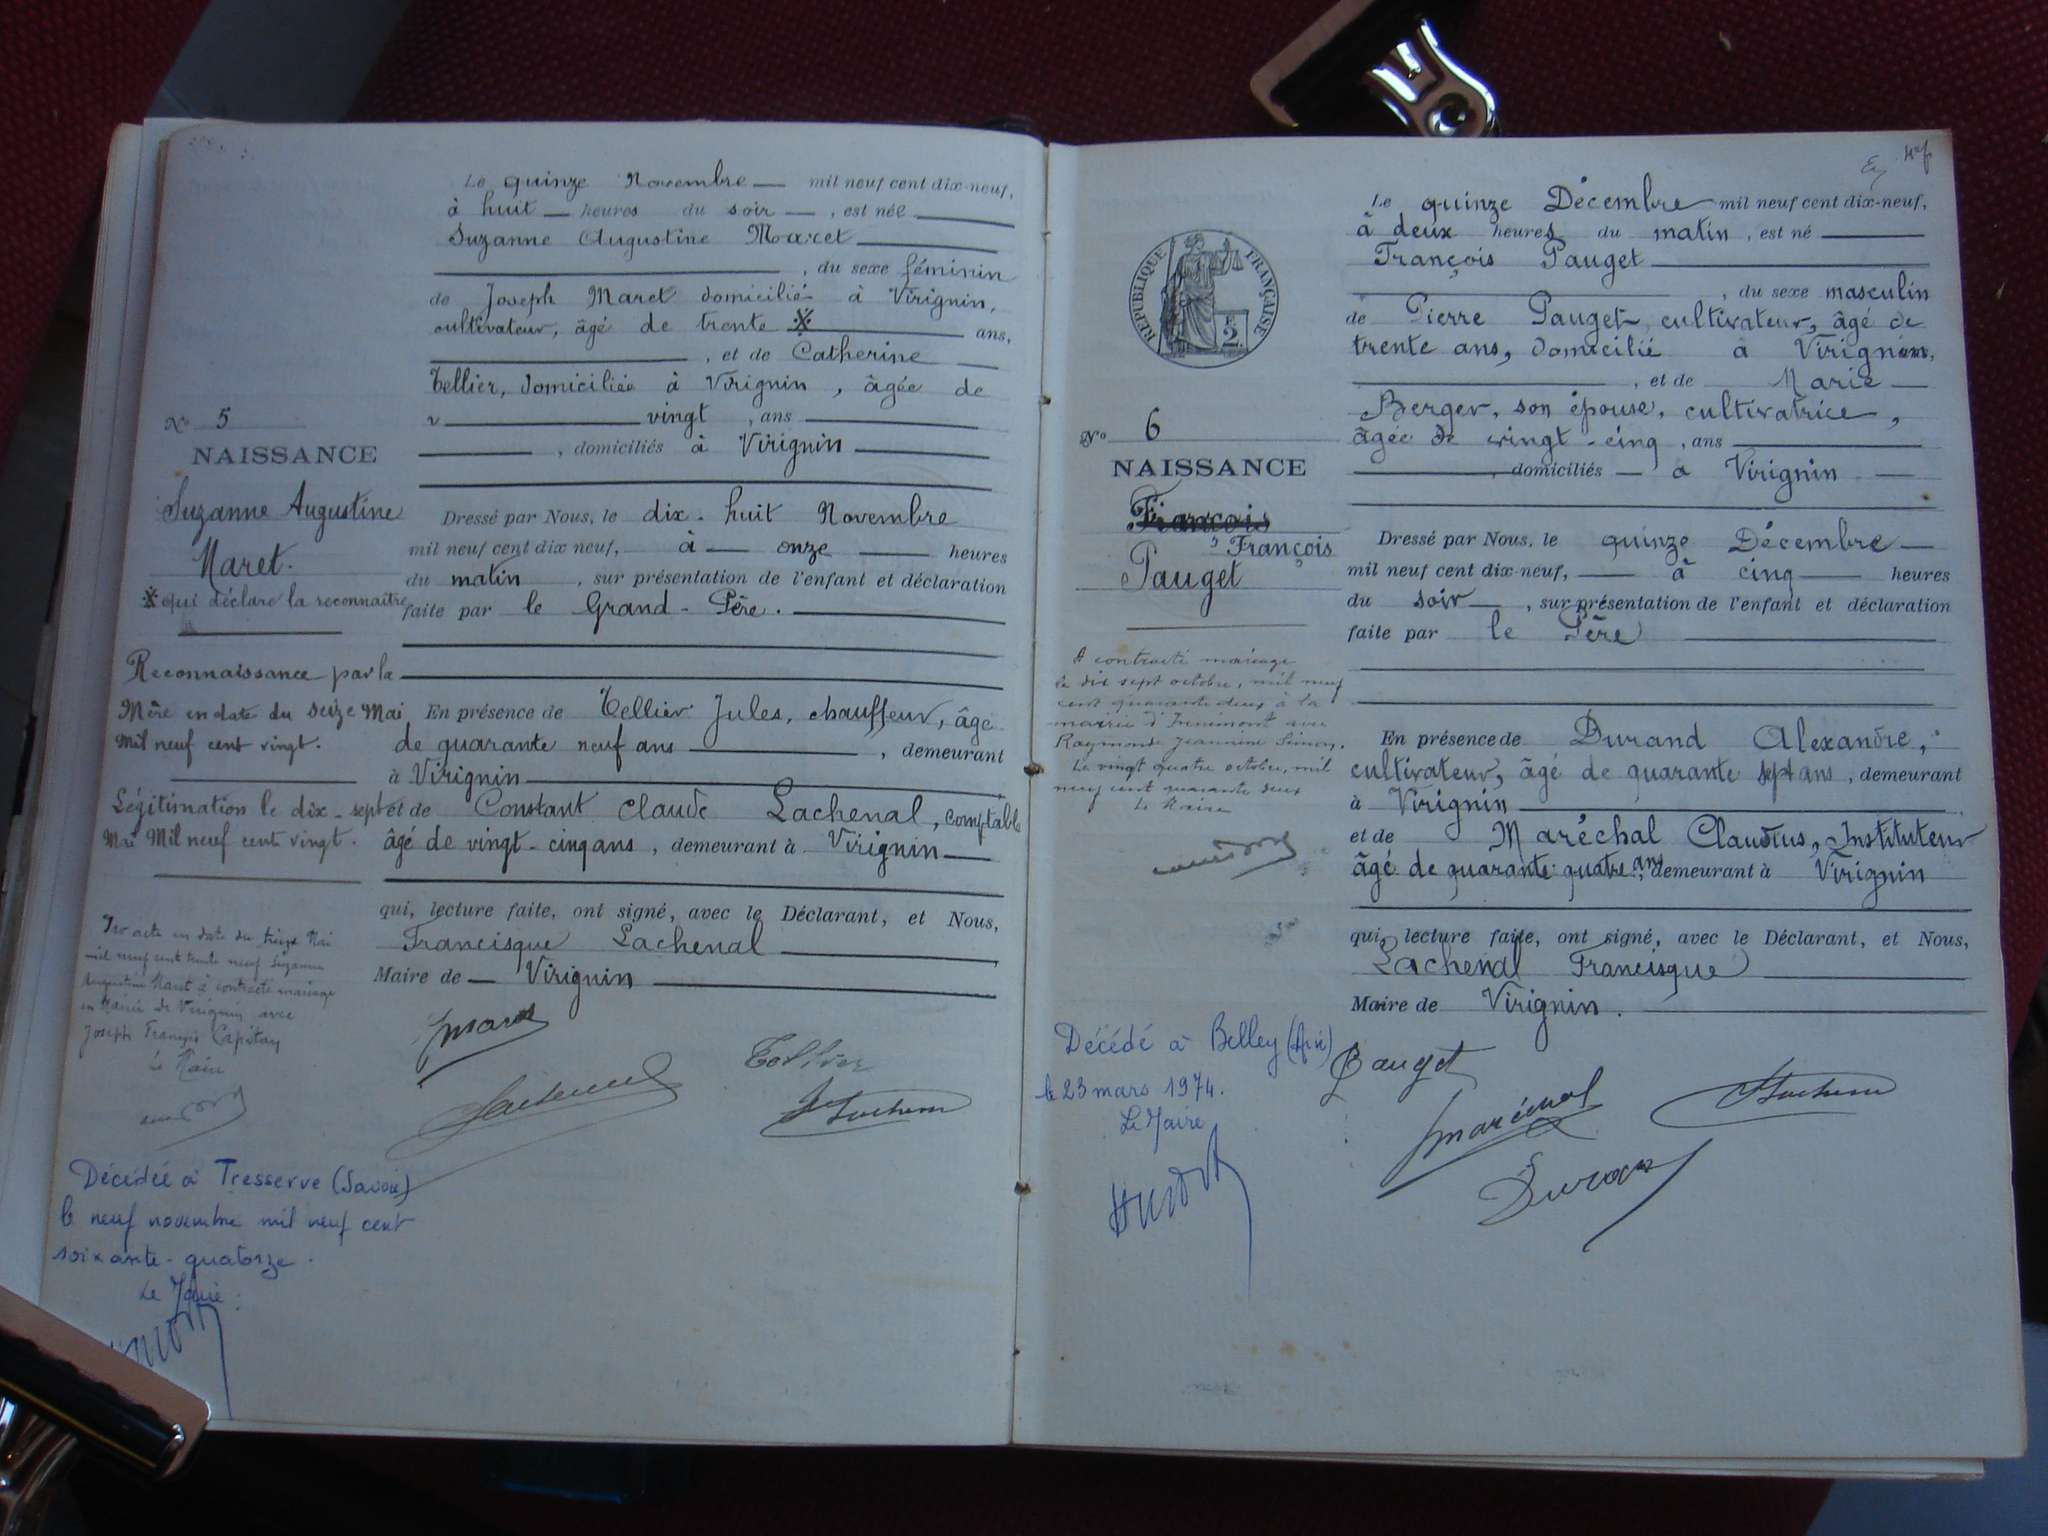 Le quinze Novembre mil neuf cent dix-neuf,
à huit heures du soir, est née
Suzanne Augustine Maret
, du sexe féminin
de Joseph Maret domicilié à Virignin,
cultivateur, âgé de trente ※ ans,
, et de Catherine
Tellier, domiciliée à Virignin, âgée de
vingt, ans
, domiciliés à Virignin
N° 5
NAISSANCE
Suzanne Augustine
Maret.
※ qui déclare la reconnaître
Dressé par Nous, le dix-huit Novembre
mil neuf cent dix neuf, à onze heures
du matin, sur présentation de l'enfant et déclaration
faite par le Grand-Père.
Reconnaissance par la
Mère en date du seize Mai
Mil neuf cent vingt.
Légitimation le dix-sept
Mai Mil neuf cent vingt.
En présence de Tellier Jules, chauffeur, âgé
de quarante neuf ans, demeurant
à Virignin
et de Constant Claude Lachenal, comptable
âgé de vingt-cinq ans, demeurant à Virignin
qui, lecture faite, ont signé, avec le Déclarant, et Nous,
Francisque Lachenal
Maire de Virignin
Par acte en date du treize Mai
mil neuf cent trente neuf Suzanne
Augustine Maret a contracté mariage
en Mairie de Virignin avec
Joseph François Capitan
Le Maire
Maret
Tellier
Décédée à Tresserve (Savoie)
le neuf novembre mil neuf cent
soixante-quatorze.
Le Maire:
Le quinze Décembre mil neuf cent dix-neuf,
à deux heures du matin, est né
François Pauget
, du sexe masculin
de Pierre Pauget, cultivateur, âgé de
trente ans, domicilié à Virignin,
, et de Marie
Berger, son épouse, cultivatrice,
âgée de vingt-cinq, ans
, domiciliés à Virignin
RÉPUBLIQUE FRANÇAISE
2
N° 6
NAISSANCE
François
François
Pauget
Dressé par Nous, le quinze Décembre
mil neuf cent dix-neuf, à cinq heures
du soir, sur présentation de l'enfant et déclaration
faite par le Père
A contracté mariage
le dix sept octobre, mil neuf
cent quarante deux à la
mairie d'Innimont avec
Raymonde Jeannine Simon.
Le vingt quatre octobre, mil
neuf cent quarante deux
Le Maire
En présence de Durand Alexandre,
cultivateur, âgé de quarante sept ans, demeurant
à Virignin
et de Maréchal Claudius, Instituteur
âgé de quarante quatre ans, demeurant à Virignin
qui, lecture faite, ont signé, avec le Déclarant, et Nous,
Lachenal Francisque
Maire de Virignin.
Décédé à Belley (Ain)
le 23 mars 1974.
Le Maire
Pauget
Maréchal
Durand